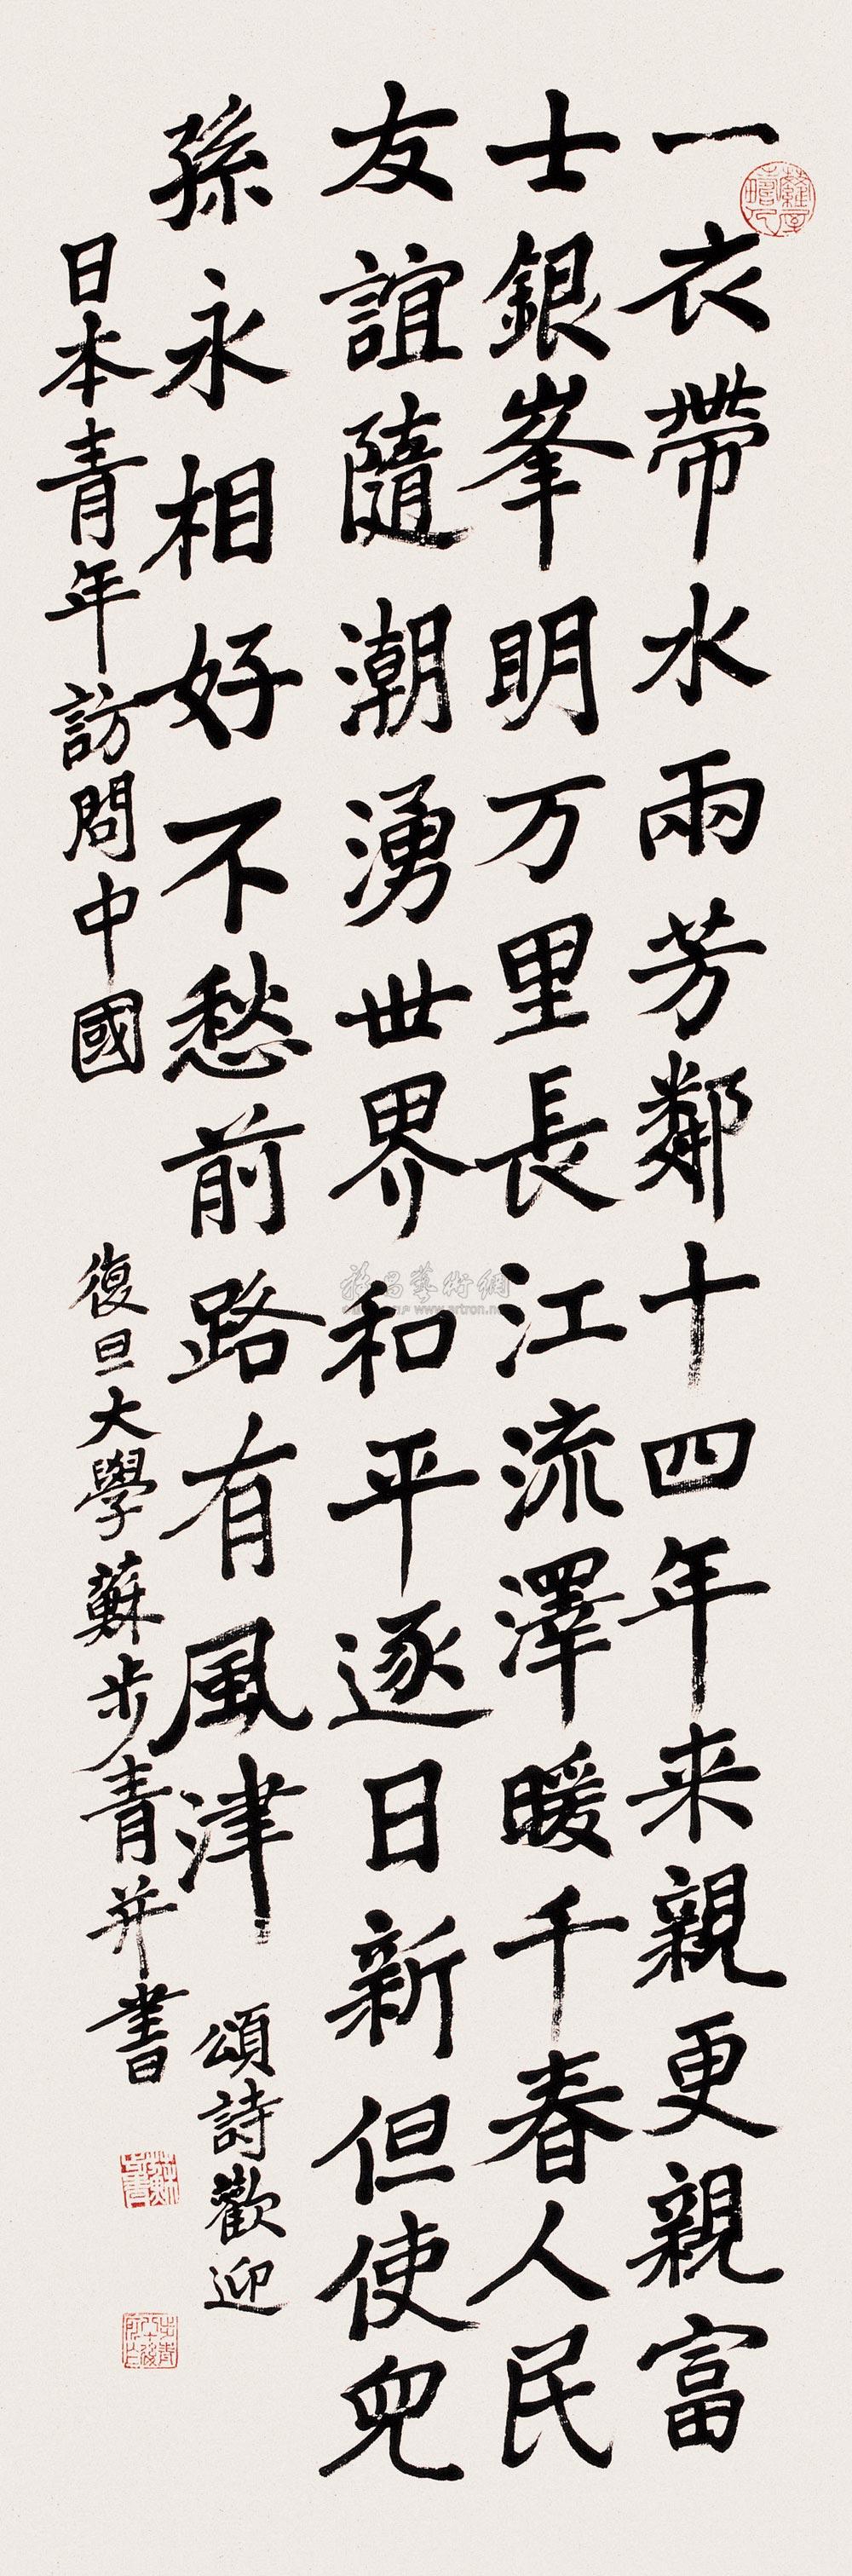 一衣帶水兩芳鄰十四年来親更親富
士銀峯明万里長江流澤暖千春人民
友誼隨潮湧世界和平逐日新但使兒
孫永相好不愁前路有風津
頌詩歡迎
日本青年訪問中國
復旦大學蘇步青并書
www.artron.net